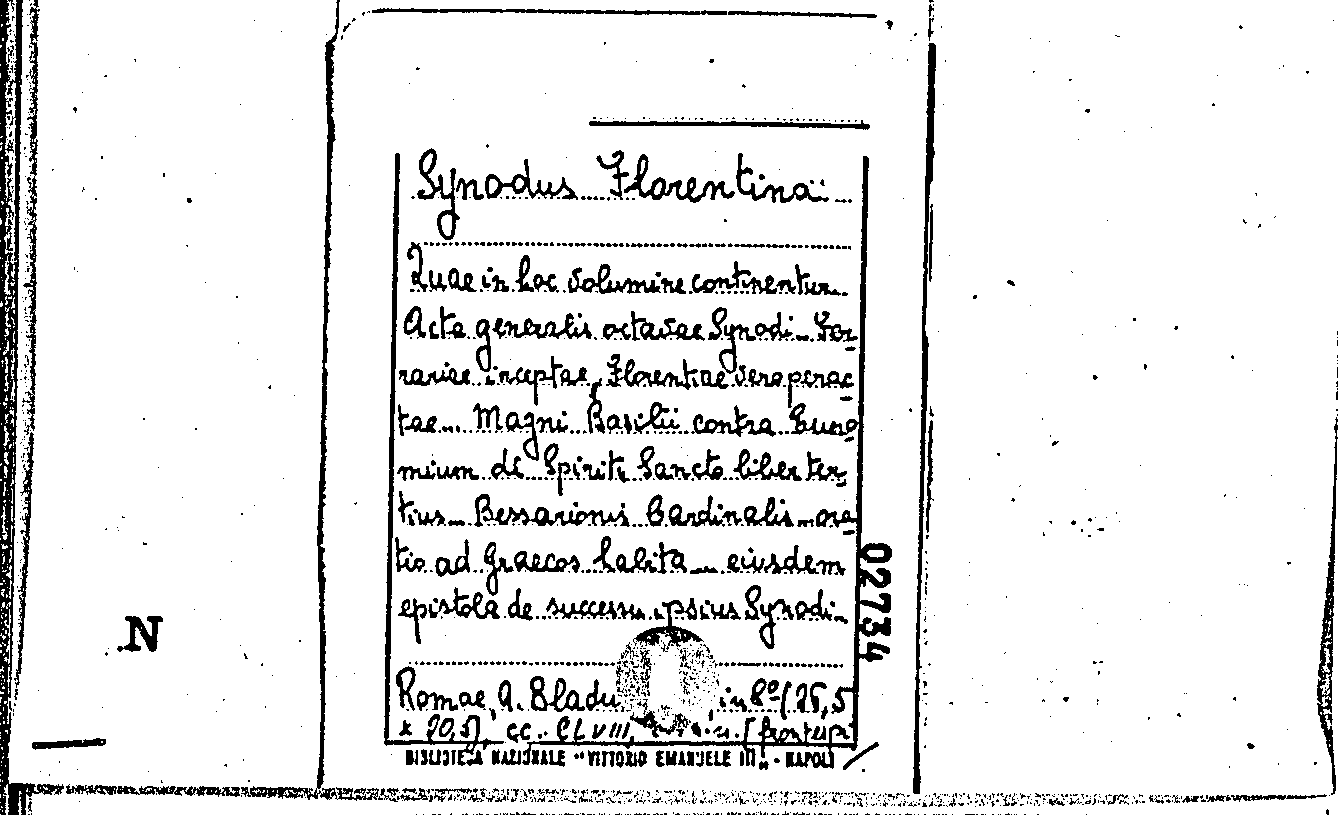 Synodus Florentina...
Quae in hoc volumine continentur...
Acta generalis octavae Synodi... Fer-
rariae inceptae, Florentiae vero perac-
tae... Magni Basilii contra Euno-
mium de Spiritu Sancto liber ter-
tius... Bessarionis Cardinalis... ora-
tio ad Graecos habita... eiusdem
epistola de successu ipsius Synodi...
Romae, A. Bladu in 8º (26,5
x 20,5), cc. CLVIII, n. [frontespi
BIBLIOTECA NAZIONALE "VITTORIO EMANUELE III" - NAPOLI
02734
N